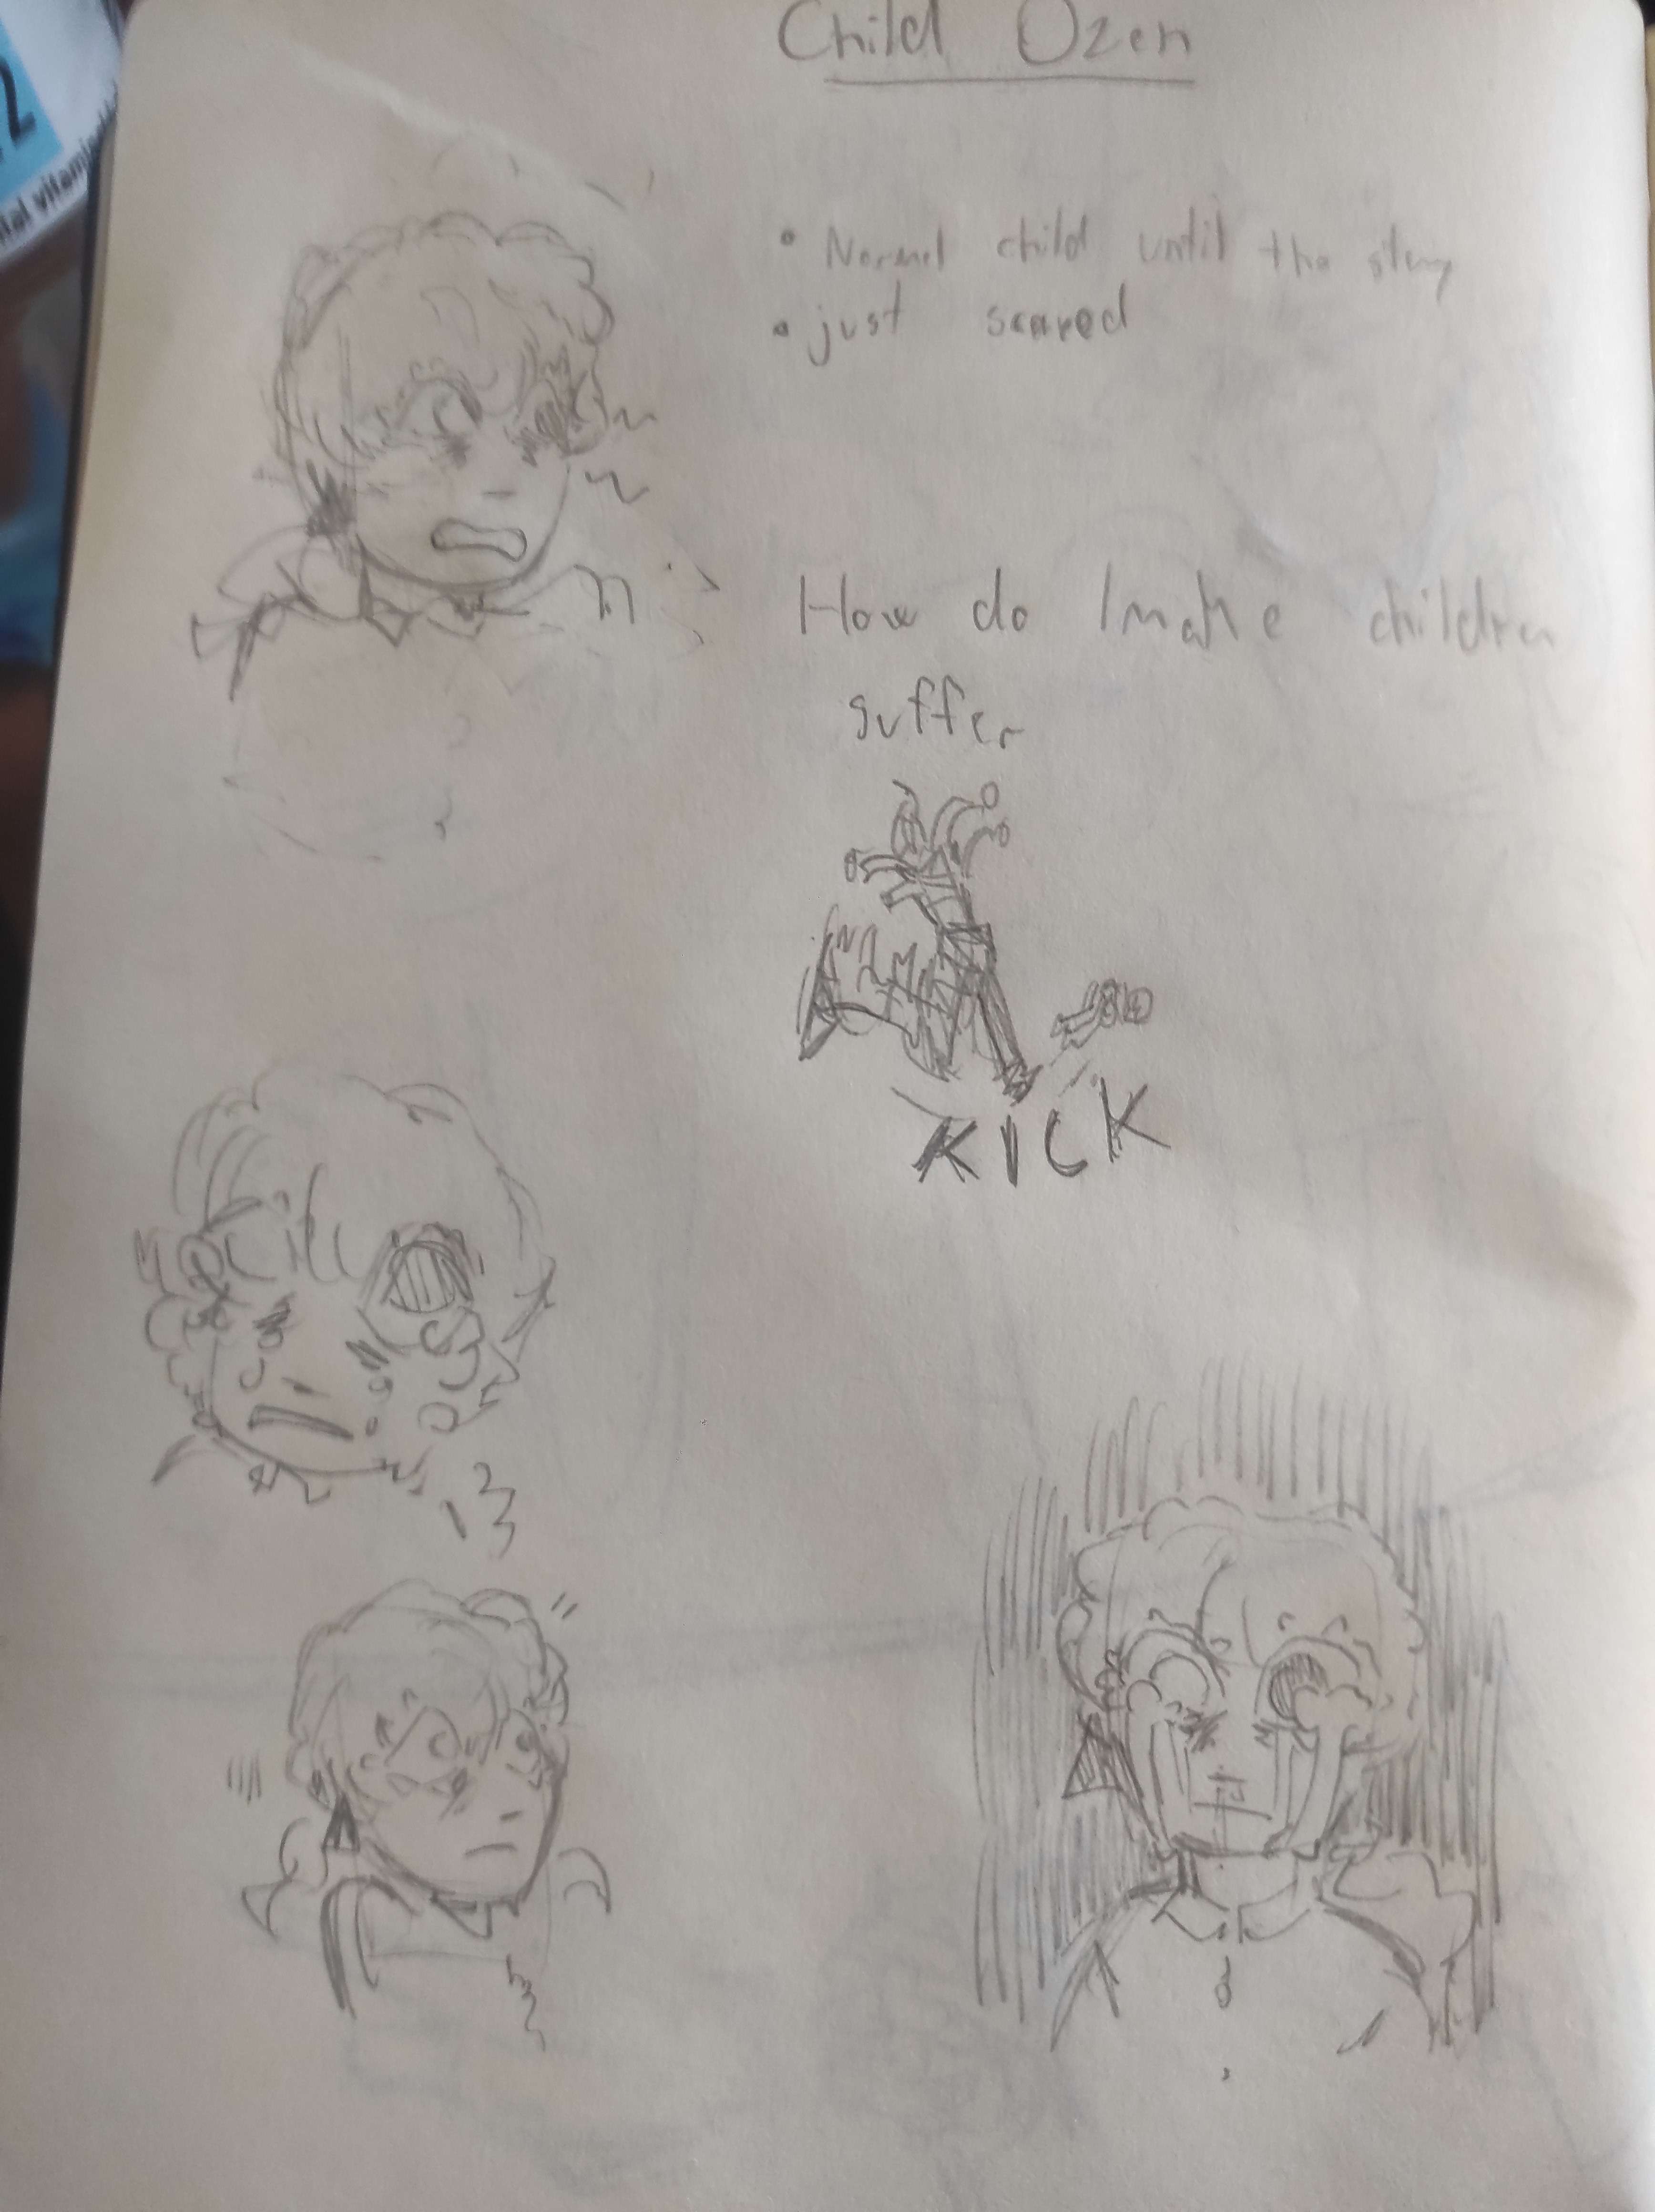 Child Ozen
• Normal child until the story
• just scared
How do I make children
suffer
KICK
2